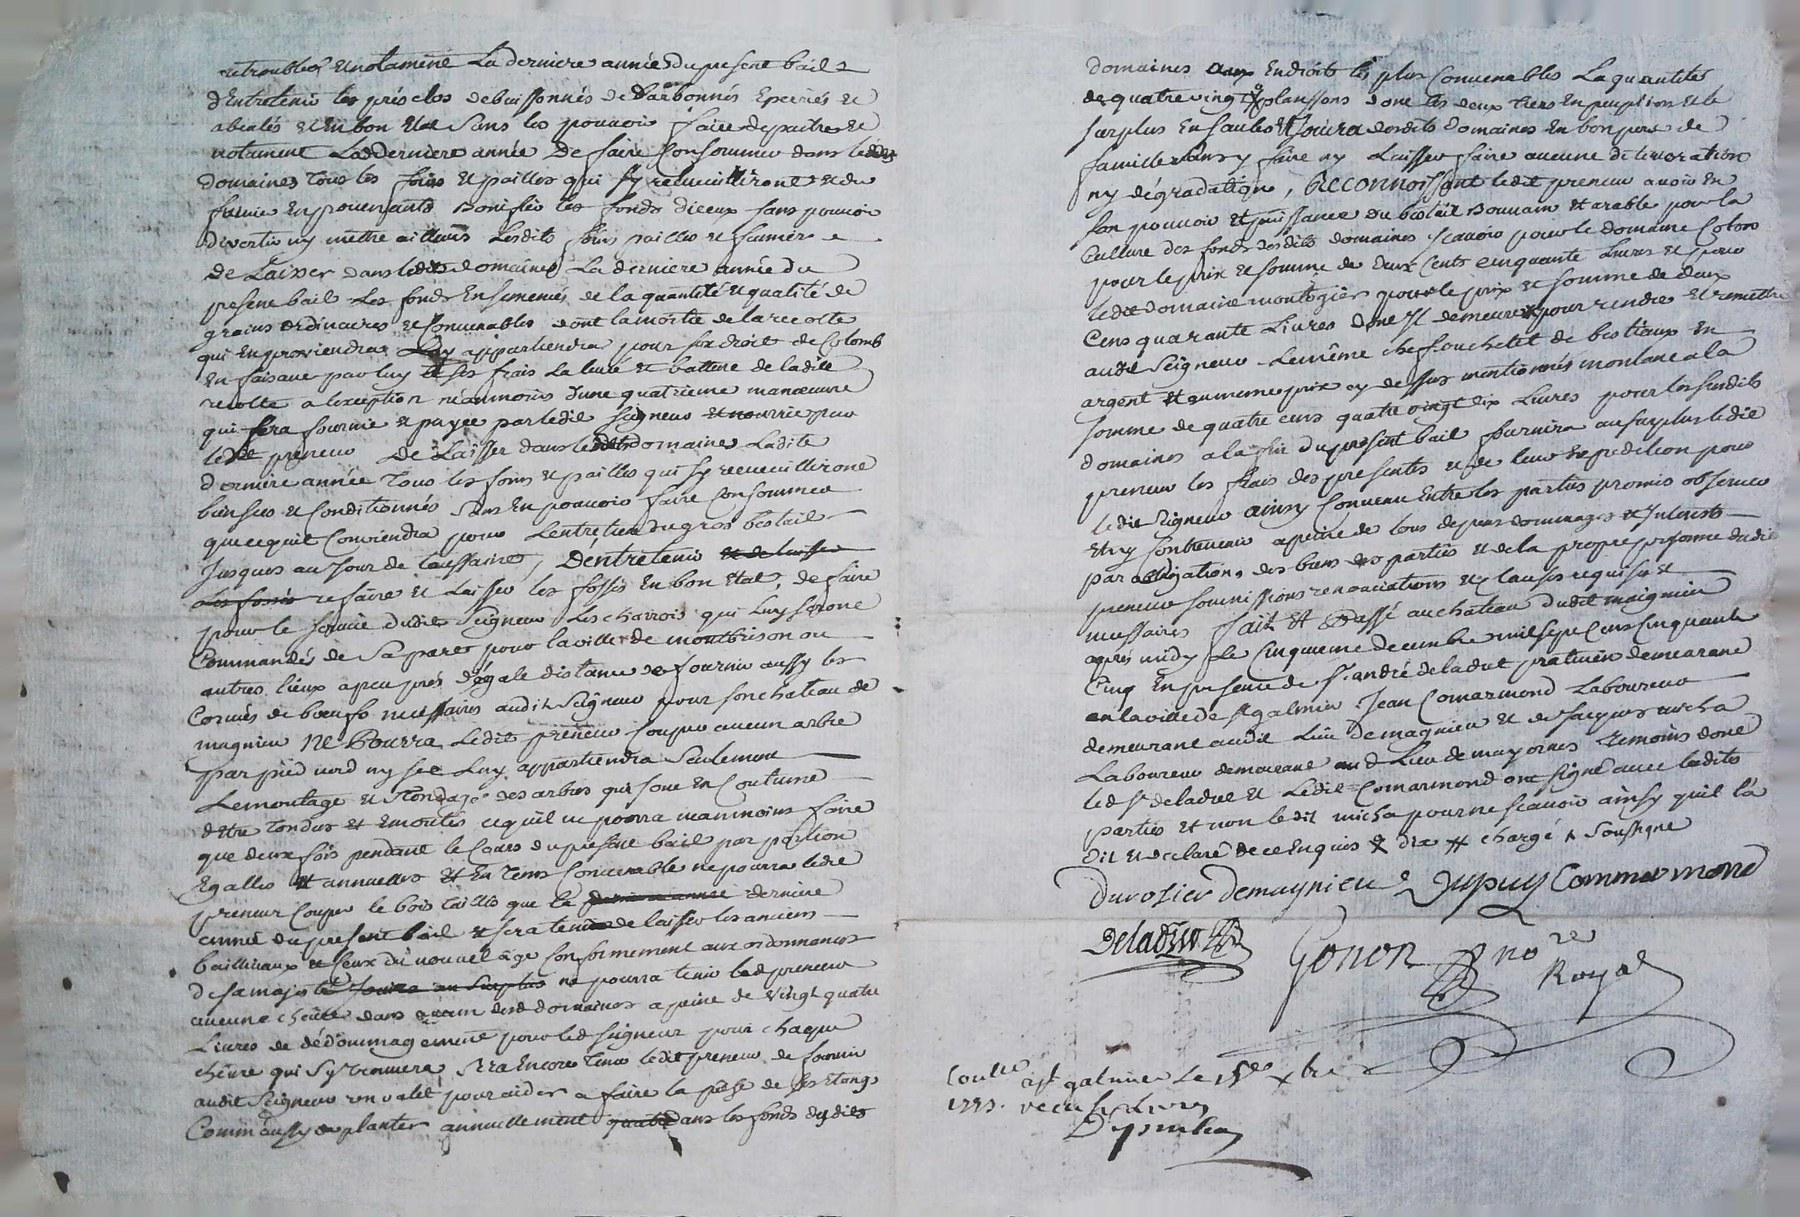 retroubler et notament La derniere année du present bail
d'Entretenir les prés clos debuissonnés Epierrés et
abialés et En bon Etat Sans les pouvoir faire depaitre et
notament Laditte Derniere année De faire Consommer dans lesdits
domaines tous les foins et pailles qui s'y recueuilliront et du
fumier En provenants Bonifier les fonds d'iceux sans pouvoir
divertir ny mettre ailleurs Lesdits foins pailles et fumier
De Laisser dans lesdits domaines La derniere année du
present bail Les fonds Ensemencés de la quantité et qualité de
grains ordinaires et Convenables dont la moitié de la recolte
qui En proviendra Luy appartiendra pour son droit de Colomb
En faisant par luy et ses frais La levée et batture de la dite
recolte a l'exception neanmoins d'une quatrieme manoeuvre
qui sera fournie et payée par ledit seigneur et nourrie par
ledit preneur De Laisser dans lesdits domaines Ladite
derniere année tous les foins et pailles qui s'y recueuilliront
bien secs et Conditionnés sans En pouvoir faire Consommer
que ce qu'il Conviendra pour L'entretien du gros bestail
Jusques au Jour de toussaint, D'entretenir et de laisser
les fossés refaire et Laisser les fossés En bon Etat, de faire
pour le service dudit Seigneur Les charrois qui Luy seront
Commandés de Sa part pour la ville de montbrison ou
autres lieux a peu près d'égale distance de fournir aussy les
Corvées de bœufs necessaires audit Seigneur pour son chateau de
magnieu Ne Pourra Ledit preneur couper aucun arbre
par pied verd ny sec Luy appartiendra Seulement
Lemontage et Tondage des arbres qui sont En Coutume
d'Etre tondus et Emontés ce qu'il ne pourra neanmoins faire
que deux fois pendant le Cours du present bail par portion
Egalles et annuelles et En tems Convenable ne pourra ledit
preneur Couper le bois taillis que la derniere année derniere
année du present bail et sera tenu de laisser les anciens
bailliveaux et Ceux du nouvel âge Conformement aux ordonnances
de sa majesté Jouira au Surplus ne pourra tenir led preneur
aucune chevre dans aucun desd domaines a peine de vingt quatre
Livres de dédommagement pour led seigneur pour chaque
chevre qui s'y trouvera Sera Encore tenu ledit preneur de fournir
audit Seigneur un valet pour aider a faire la pêche de ses Etangs
Comme aussy de planter annuellement quatre dans les fonds desdits
domaines aux Endroits les plus Convenables La quantité
de quatre vingt plansons dont les deux tiers En peupliers et le
surplus En saules Et Jouira desdits domaines En bon pere de
famille sans y faire ny Laisser faire aucune deterioration
ny dégradation, Reconnoissant ledit preneur avoir En
son pouvoir et puissance du bestail Bouvain et arable pour la
Culture des fonds desdits domaines scavoir pour le domaine Colon
pour le prix et somme de deux Cents cinquante Livres et pour
ledit domaine montagier pour le prix et somme de deux
Cens quarante Livres dont Il demeure pour rendre et remettre
audit Seigneur Le même chef ouchetel de bestiaux En
argent et au meme prix cy dessus mentionnés montant a la
somme de quatre cens quatre vingt dix Livres pour les susdits
domaines a la fin du present bail fournira au surplus ledit
preneur les frais des presentes et de leur Expedition pour
ledit Seigneur ainsy Convenu Entre les parties promis observer
Et n'y Contrevenir a peine de tous depens dommages et Interests
par obligations des biens des parties et de la propre personne dudit
preneur soumissions renonciations et clauses requises et
necessaires fait et Passé au chateau dudit magnieu
après midy Le Cinquieme decembre mil sept Cens Cinquante
Cinq En presence de Sr andré deladret praticien demeurant
en la ville de St galmier Jean Comarmond Laboureur
demeurant audit Lieu de magnieu et de Jacques micha
Laboureur demeurant au d Lieu de mayoines temoins dont
led Sr deladret et Ledit Comarmond ont Signé avec lesdits
parties et non ledit micha pour ne scavoir ainsy qu'il l'a
dit et declaré de ce Enquis chargé Soussigne
Durosier demagnieu Dupuy Commarmond
Deladret Gonon nore
Royal
Conllé a St galmier Le 15e xbre
1755. recu Livres